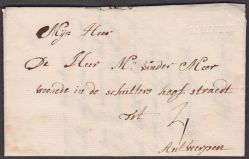 Mijn Heer
De Heer Mr. vinder Meer
woonde in de schutters hoof straedt
tot
Antwerpen